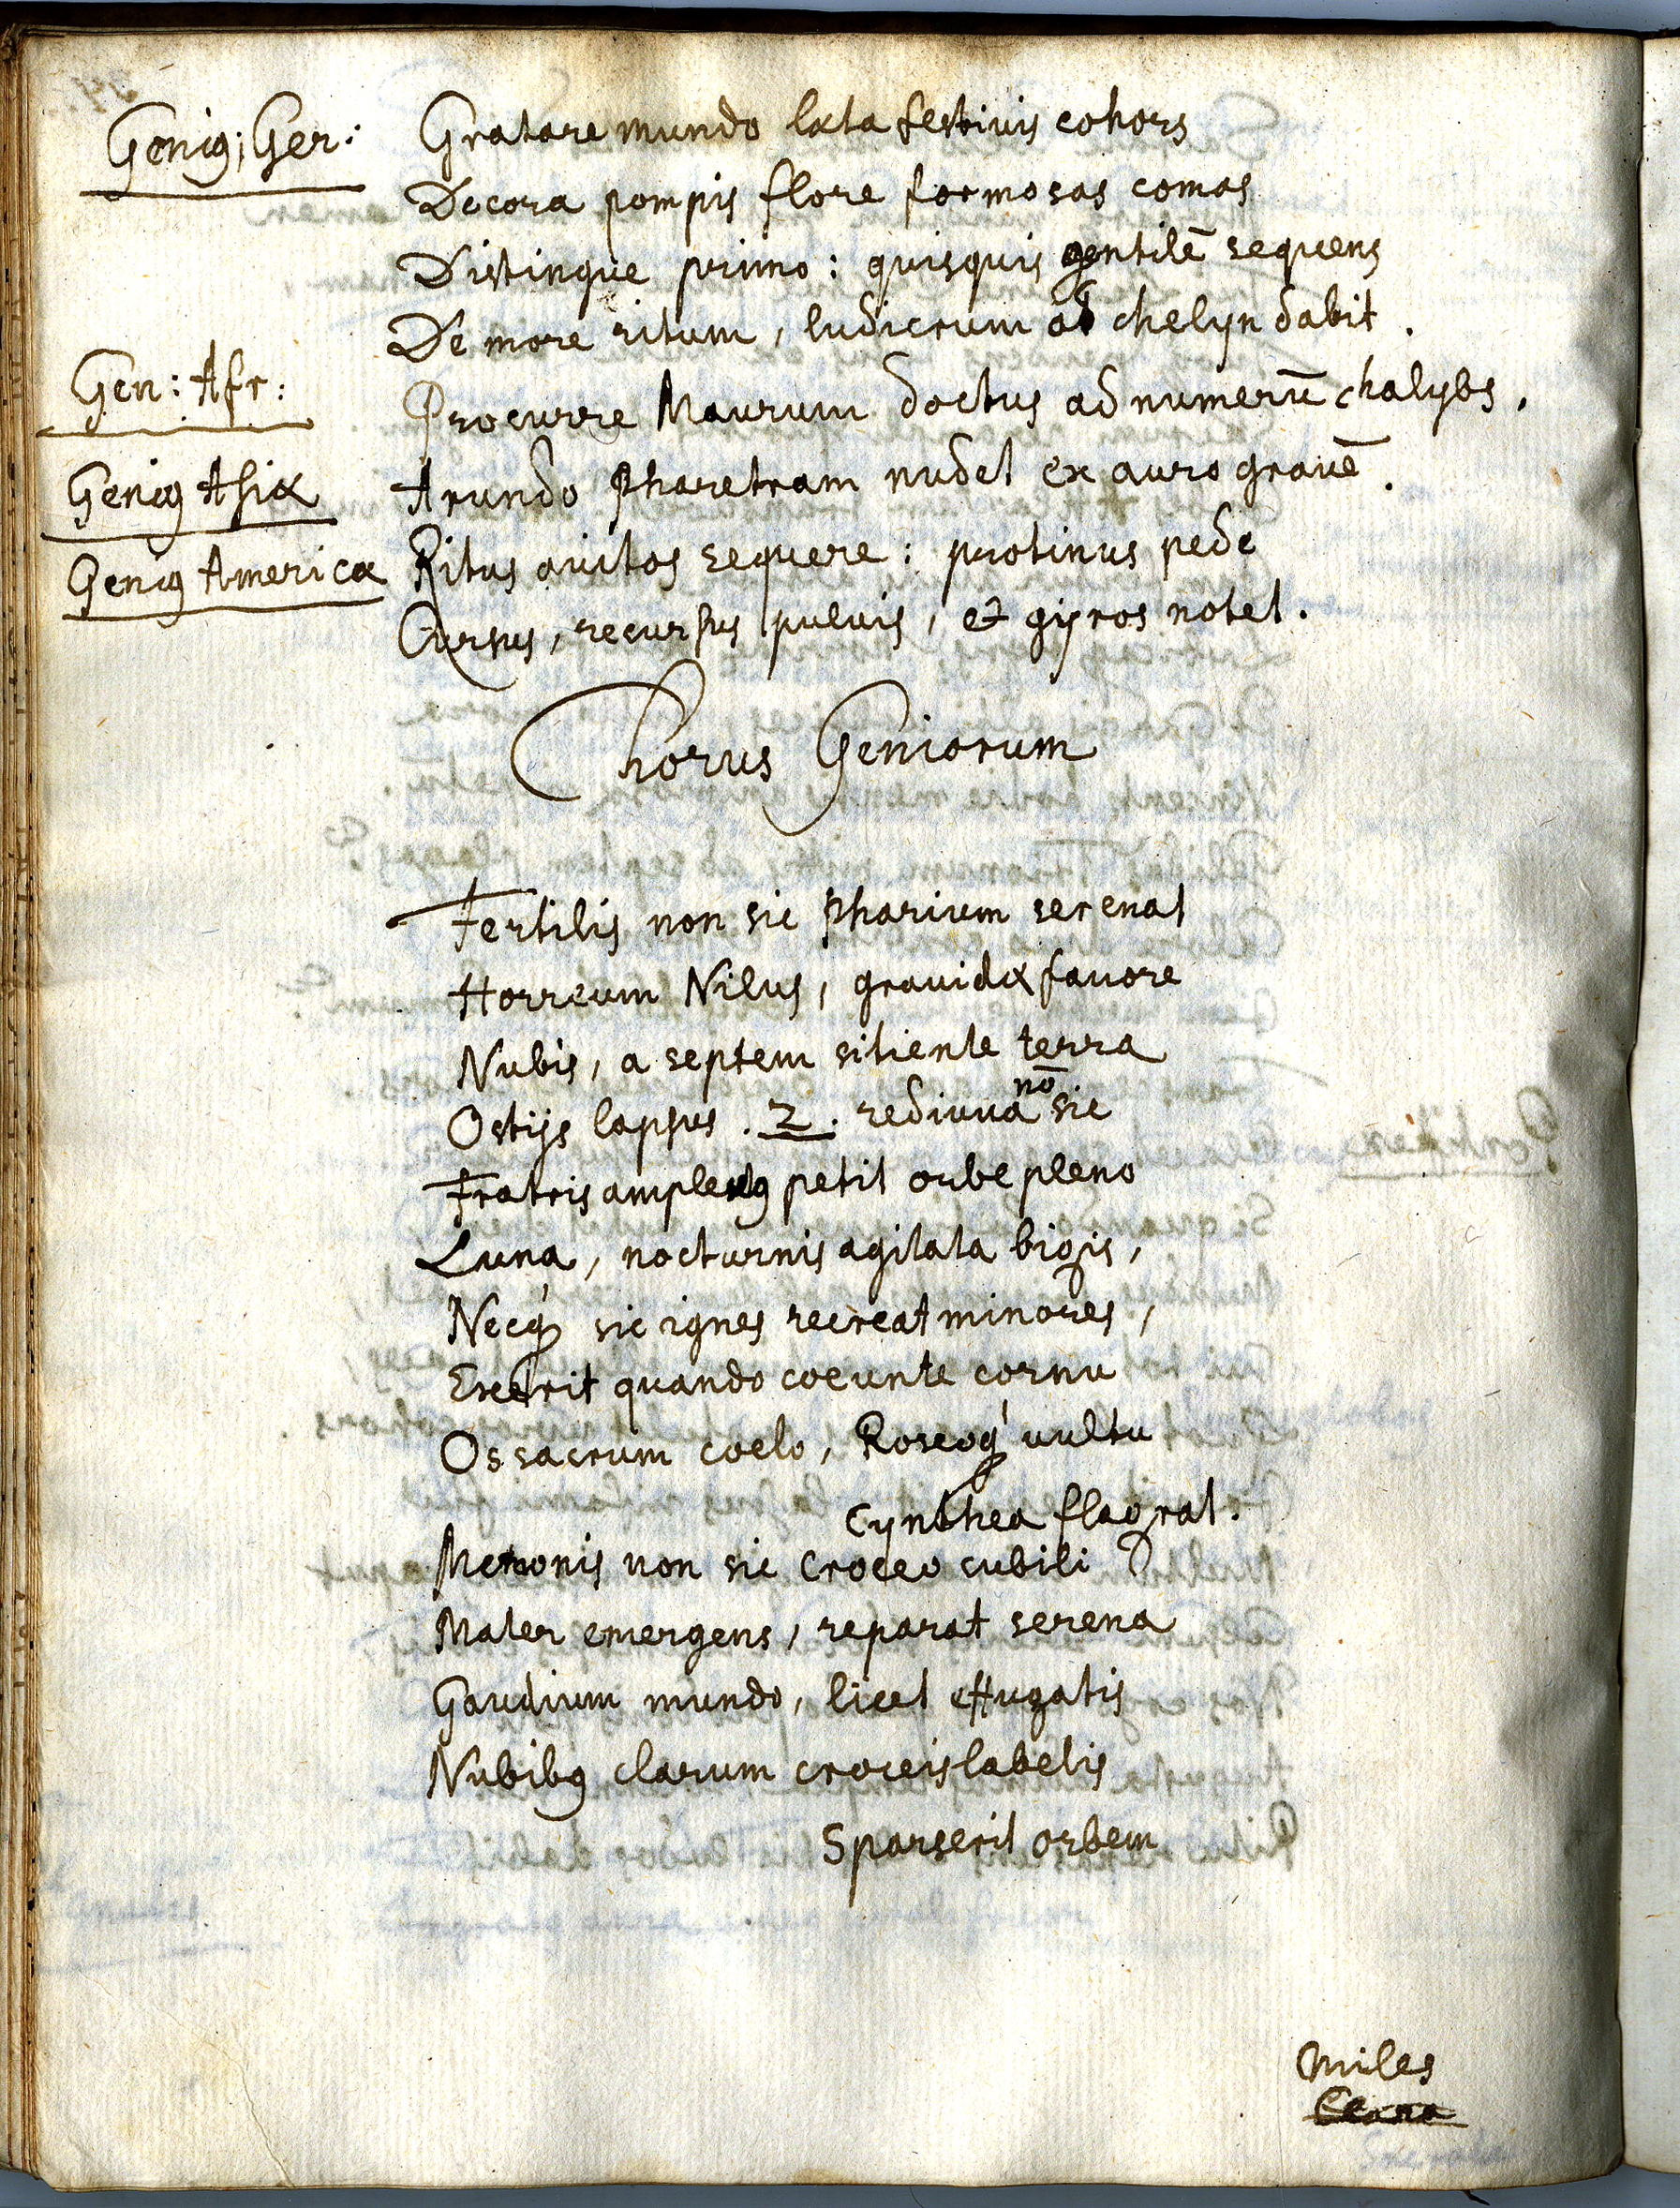 Geniꝰ; Ger: Gratare mundo læta festivis cohors
Decora pompis flore formosas comas
Distingue primo: quisquis gentilē sequens
De more ritum, ludicrum ad chelyn dabit.
Gen: Afr: Procurre Maurum doctus ad numerū chalybs,
Geniꝰ Asiæ Arundo Pharetram nudet ex auro grauē.
Geniꝰ Americæ Ritus auitos sequere: protinus pede
Cursus, recursus puluis, et gyros notet.
Chorus Geniorum
Fertilis non sic Pharium serenat
Horreum Nilus, grauidæ fauore
Nubis, a septem sitiente terra
Ostijs lapsus. 2. rediuiua nō sic
Fratris amplexꝰ petit orbe pleno
Luna, nocturnis agitata bigis,
Necq́ sic ignes recreat minores,
Exerit quando coeunte cornu
Os sacrum coelo, Roseoq́ uultu
Cynthea flagrat.
non sic croceo cubili
Mater emergens, reparat serena
Gaudium mundo, licet effugatis
Nubibꝰ clarum croceis labelis
Sparserit orbem
Miles